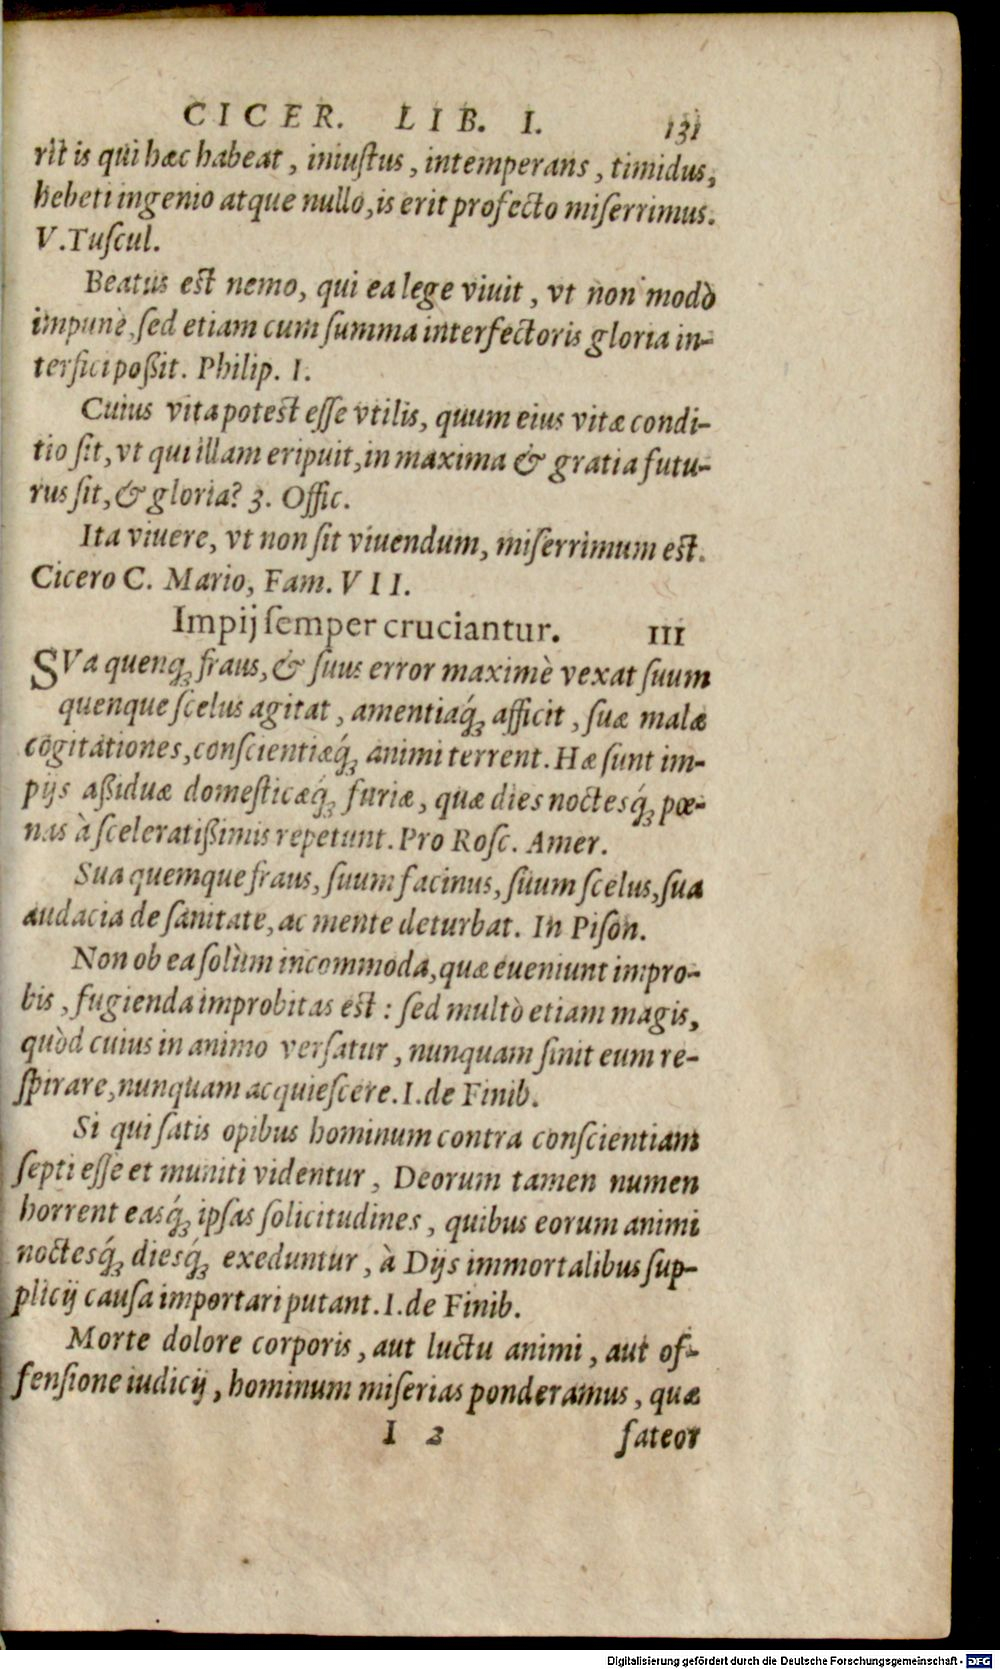 CICER. LIB. I. 131
rit is qui hæc habeat, iniuſtus, intemperans, timidus,
hebeti ingenio atque nullo, is erit profecto miſerrimus.
V. Tuſcul.
Beatus est nemo, qui ea lege viuit, vt non modò
impunè, ſed etiam cum ſumma interfectoris gloria in-
terfici poßit. Philip. I.
Cuius vita potest eſſe vtilis, quum eius vitæ condi-
tio ſit, vt qui illam eripuit, in maxima & gratia futu-
rus ſit, & gloria? 3. Offic.
Ita viuere, vt non ſit viuendum, miſerrimum est.
Cicero C. Mario, Fam. VII.
Impij ſemper cruciantur. III
SVa quenq; fraus, & ſuus error maximè vexat ſuum
quenque ſcelus agitat, amentiaq́; afficit, ſuæ malæ
cogitationes, conſcientiæq́; animi terrent. Hæ ſunt im-
pijs aßiduæ domeſticæq́; furiæ, quæ dies noctesq́; pœ-
nas à ſceleratißimis repetunt. Pro Roſc. Amer.
Sua quemque fraus, ſuum facinus, ſuum ſcelus, ſua
audacia de ſanitate, ac mente deturbat. In Piſon.
Non ob ea ſolùm incommoda, quæ eueniunt impro-
bis, fugienda improbitas est: ſed multò etiam magis,
quòd cuius in animo verſatur, nunquam ſinit eum re-
ſpirare, nunquam acquieſcere. I. de Finib.
Si qui ſatis opibus hominum contra conſcientiam
ſepti eſſe et muniti videntur, Deorum tamen numen
horrent easq́; ipſas ſolicitudines, quibus eorum animi
noctesq́; diesq́; exeduntur, à Dijs immortalibus ſup-
plicij cauſa importari putant. I. de Finib.
Morte dolore corporis, aut luctu animi, aut of-
fenſione iudicij, hominum miſerias ponderamus, quæ
I 2 fateor
Digitalisierung gefördert durch die Deutsche Forschungsgemeinschaft - DFG